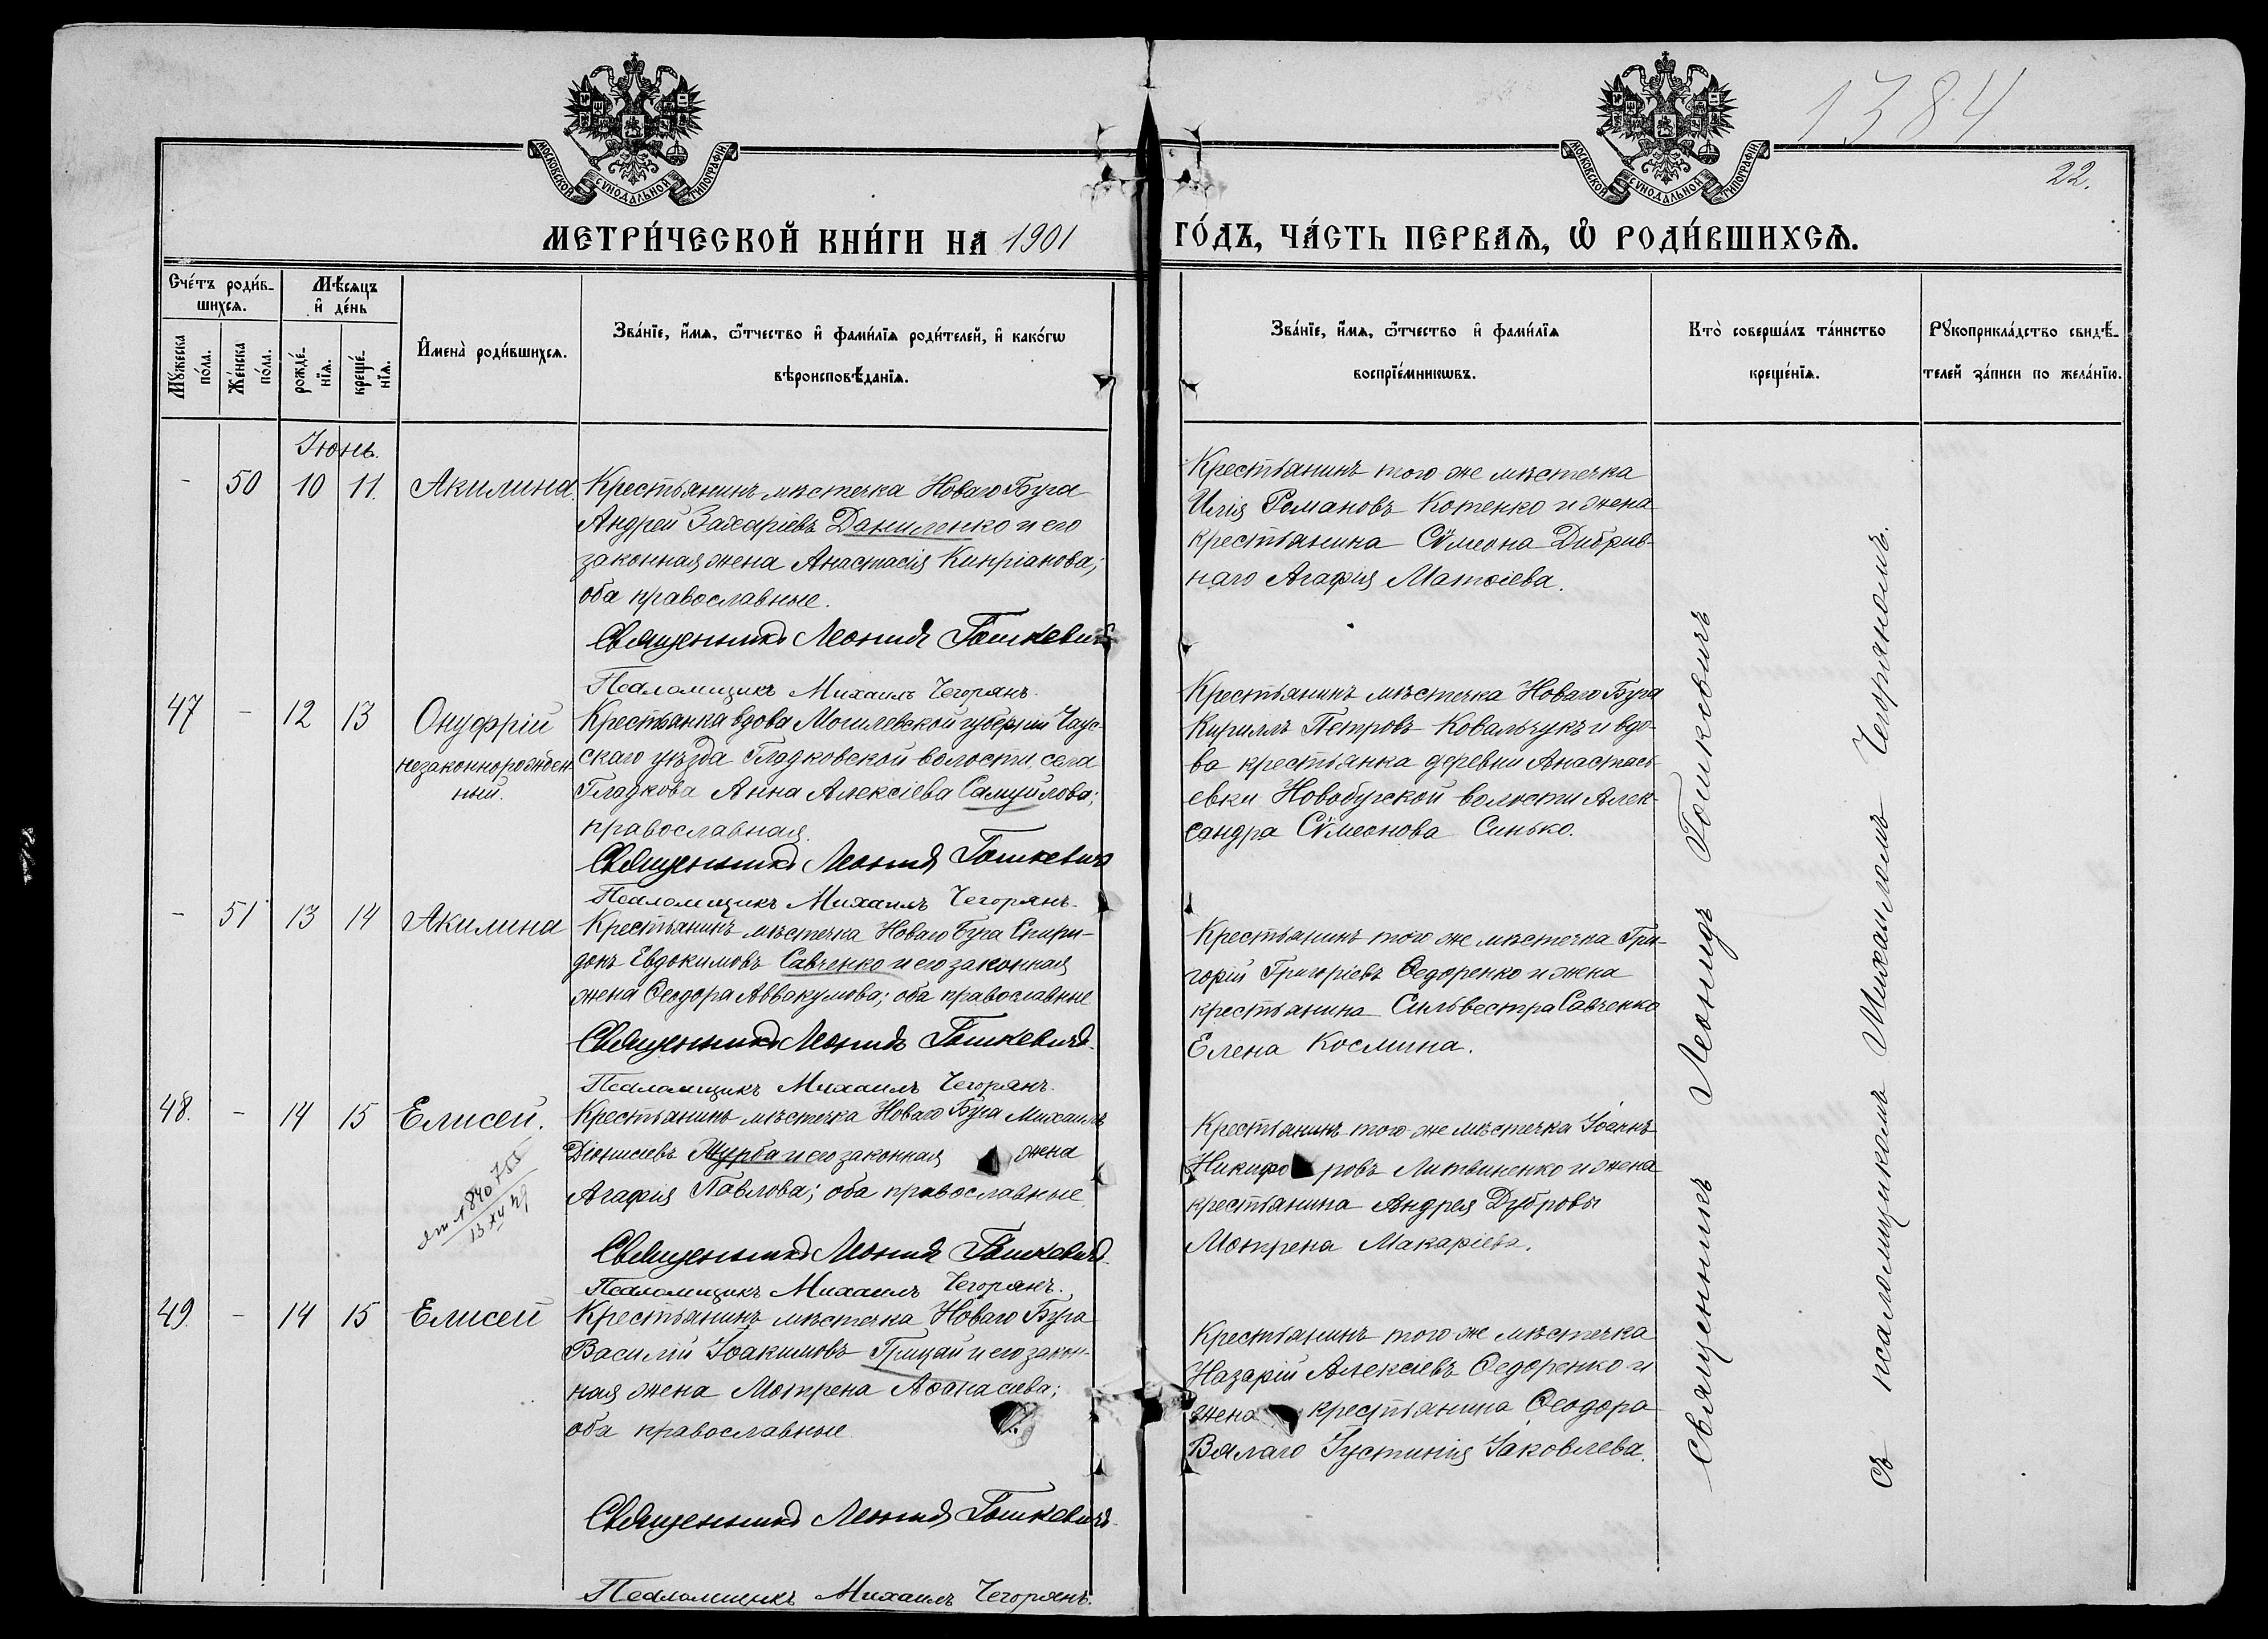 1384
22.
МОСКОВСКОЙ СѴНОДАЛЬНОЙ ТИПОГРАФІИ
МОСКОВСКОЙ СѴНОДАЛЬНОЙ ТИПОГРАФІИ
МЕТРИ́ЧЕСКОЙ КНИ́ГИ НА 1901 ГО́ДЪ, ЧА́СТЬ ПЕРВАѦ, Ѡ РОДИ́ВШИХСѦ.
Сче́тъ роди́в-
шихсѧ.
Мꙋ́жеска по́ла.
Же́нска по́ла.
Мѣ́сяцъ
и де́нь
рожде́-
нїѧ.
креще́-
нїѧ.
Имена̀ роди́вшихсѧ.
Зва́нїе, и́мѧ, ѻ́тчество и фами́лїѧ роди́телей, и како́гѡ
вѣроисповѣ́данїѧ.
Зва́нїе, и́мѧ, ѻ́тчество и фами́лїѧ
воспрїе́мникѡвъ.
Кто̀ соверша́лъ та́инство
креще́нїѧ.
Рꙋкоприкла́дство свидѣ́-
телей за́писи по жела́нїю.
Іюнь.
- 50 10 11. Акилина.
Крестьянинъ мѣстечка Новаго Буга
Андрей Захаріевъ Даниленко и его
законная жена Анастасія Кипріанова;
оба православные.
Священникъ Леонидъ Гошкевичъ
Псаломщикъ Михаилъ Чегорянъ.
Крестьянинъ того же мѣстечка
Илія Романовъ Котенко и жена
крестьянина Сѷмеона Дибрив-
наго Агафія Матѳіева.
47 - 12 13 Онуфрій
незаконнорожден-
ный.
Крестьянка вдова Могилевской губерніи Чаус-
скаго уѣзда Гладковской волости, села
Гладкова Анна Алексіева Самуйлова;
православная.
Священникъ Леонидъ Гошкевичъ
Псаломщикъ Михаилъ Чегорянъ.
Крестьянинъ мѣстечка Новаго Буга
Кириллъ Петровъ Ковальчукъ и вдо-
ва крестьянка деревни Анастась-
евки Новобугской волости Алек-
сандра Сѷмеонова Синько.
- 51 13 14 Акилина
Крестьянинъ мѣстечка Новаго Буга Спири-
донъ Евдокимовъ Савченко и его законная
жена Ѳеодора Аввакумова; оба православные
Священникъ Леонидъ Гошкевичъ.
Псаломщикъ Михаилъ Чегорянъ.
Крестьянинъ того же мѣстечка Гри-
горій Григоріевъ Ѳедоренко и жена
крестьянина Сильвестра Савченко
Елена Космина.
48. - 14 15 Елисей.
13 XII 49
Крестьянинъ мѣстечка Новаго Буга Михаилъ
Діонисіевъ Журба и его законная жена
Агафія Павлова; оба православные.
Священникъ Леонидъ Гошкевичъ.
Псаломщикъ Михаилъ Чегорянъ.
Крестьянинъ того же мѣстечка Іоаннъ
Никифоровъ Литвиненко и жена
крестьянина Андрея Дубровы
Мотрена Макаріева.
49. - 14 15 Елисей
Крестьянинъ мѣстечка Новаго Буга
Василій Іоакимовъ Грицай и его закон-
ная жена Мотрена Аѳанасіева;
оба православные
Священникъ Леонидъ Гошкевичъ.
Псаломщикъ Михаилъ Чегорянъ.
Крестьянинъ того же мѣстечка
Назарій Алексіевъ Ѳедоренко и
жена крестьянина Ѳеодора
Вялаго Іустинія Іаковлева.
Священникъ Леонидъ Гошкевичъ
съ псаломщикомъ Михаиломъ Чегоряномъ.